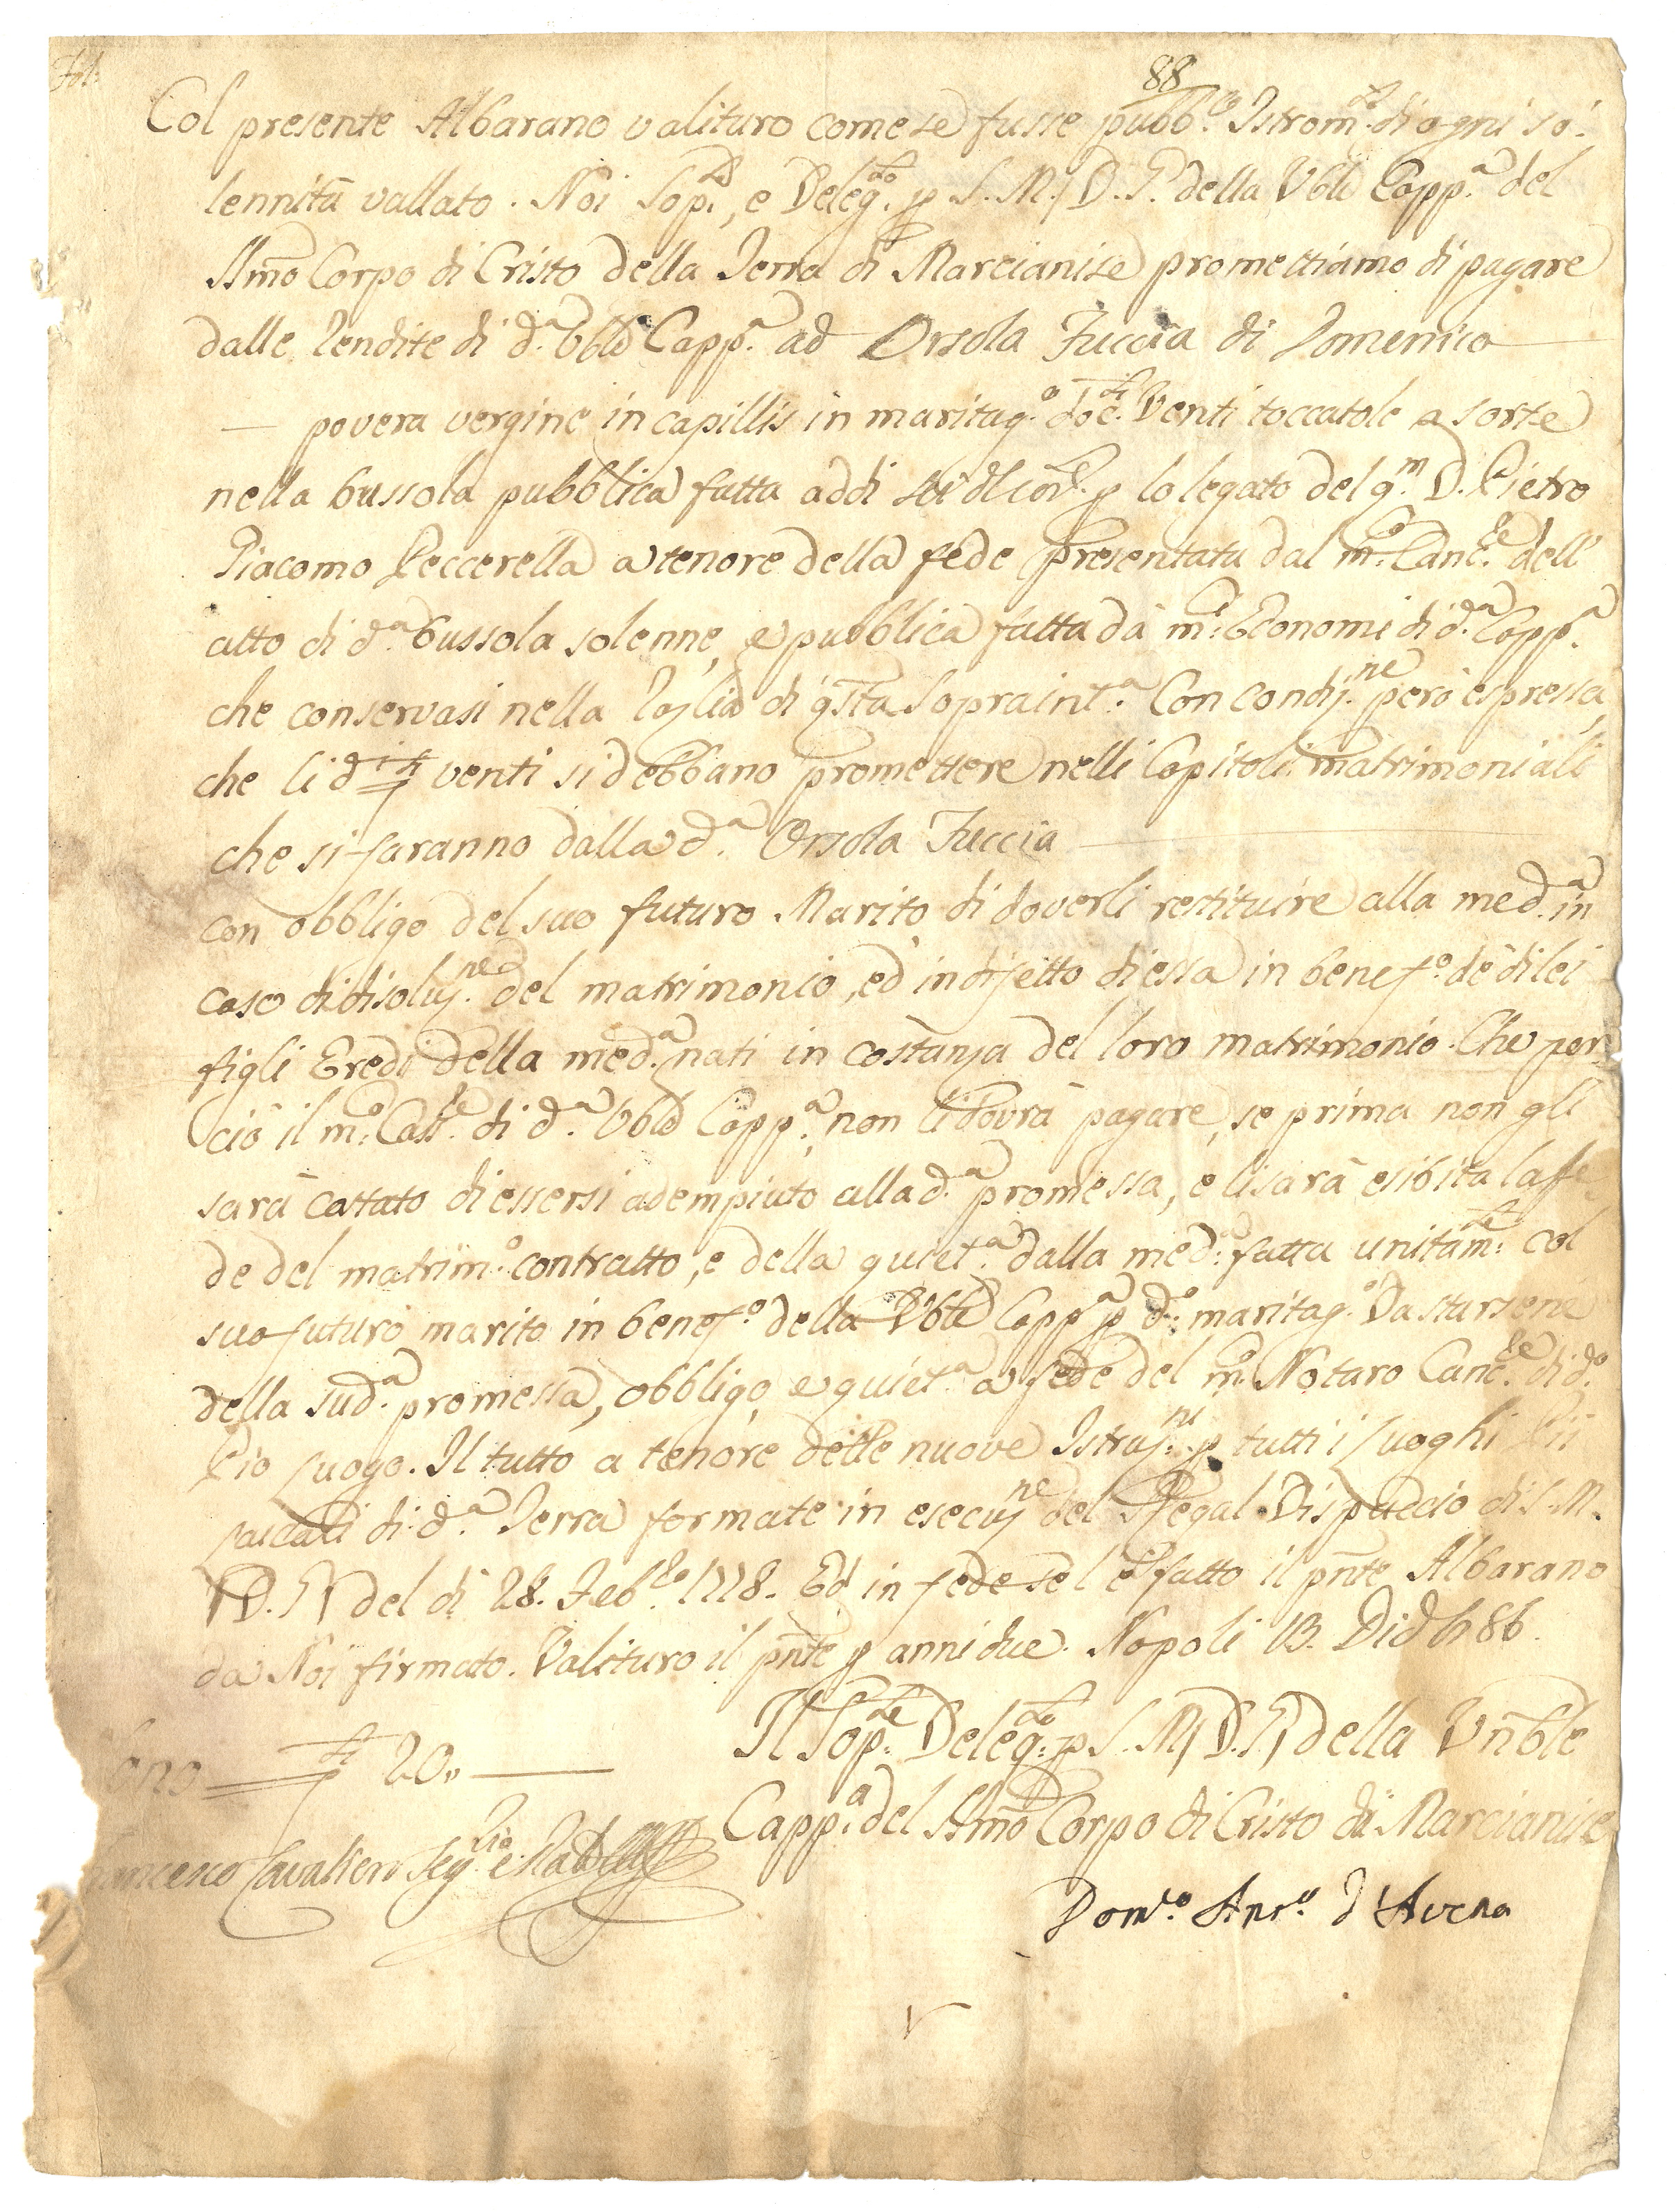 Fol:
88
Col presente Albarano valituro come se fusse pubb.co Istrom.to di ogni so:
lennità vallato. Noi Sop.te, e Deleg.to p S.M. D.G. della Vble Capp.a del
SSmo Corpo di Cristo della Terra di Marcianise promettiamo di pagare
dalle rendite di d.a Vble Capp.a ad Orsola Fuccia di Domenico
povera vergine in capillis in maritag.o doc.ti Venti toccatole a sorte
nella bussola pubblica fatta addi sei del cor.te p lo legato del q.m D. Pietro
Giacomo Peccerella a tenore della fede presentata dal m.co Canc.re dell'
atto di d.a bussola solenne, e pubblica fatta dà m.ci Economi di d.a Capp.a
che conservasi nella di qsta Sopraint.a Con condiz.ne però espressa,
che li d.ti venti si debbano promettere nelli Capitoli matrimoniali
che si faranno dalla d.a Orsola Fuccia
con obbligo del suo futuro Marito di doverli restituire alla med.a in
caso di disoluz.ne del matrimonio, ed in difetto di essa in benef.o dè di lei
figli Eredi della med.a nati in costanza del loro matrimonio. Che per
ciò il m.co Cass.re di d.a Vble Capp.a non li dovrà pagare, se prima non gli
sarà costato di essersi adempiuto alla d.a promessa, e li sarà esibita la fe
de del matrim.o contratto, e della quiet.a dalla med.a fatta unitam.te col
suo futuro marito in benef.o della Vble Capp.a p d.o maritag.o Da starsene
della sud.a promessa, obbligo, e quiet.a a fede del m.co Notaro Canc.re di d.o
Pio Luogo. Il tutto a tenore delle nuove Istruz.ni p tutti i Luoghi Pii
Laicali di d.a Terra formate in esecuz.ne del Regal Dispaccio di S.M.
D.G. del di 28. Feb.ro 1778. Ed in fede se l'è fatto il pnte Albarano
da Noi firmato. Valituro il pnte p anni due. Napoli 13. Di 86.
Il Sop.te Deleg.to p S.M. D.G. della Vnble
ono 20,,
Capp.a del SSmo Corpo di Cristo di Marcianise
Francesco Cavalieri Seg.rio e
Dom.co Ant.o d'Avena